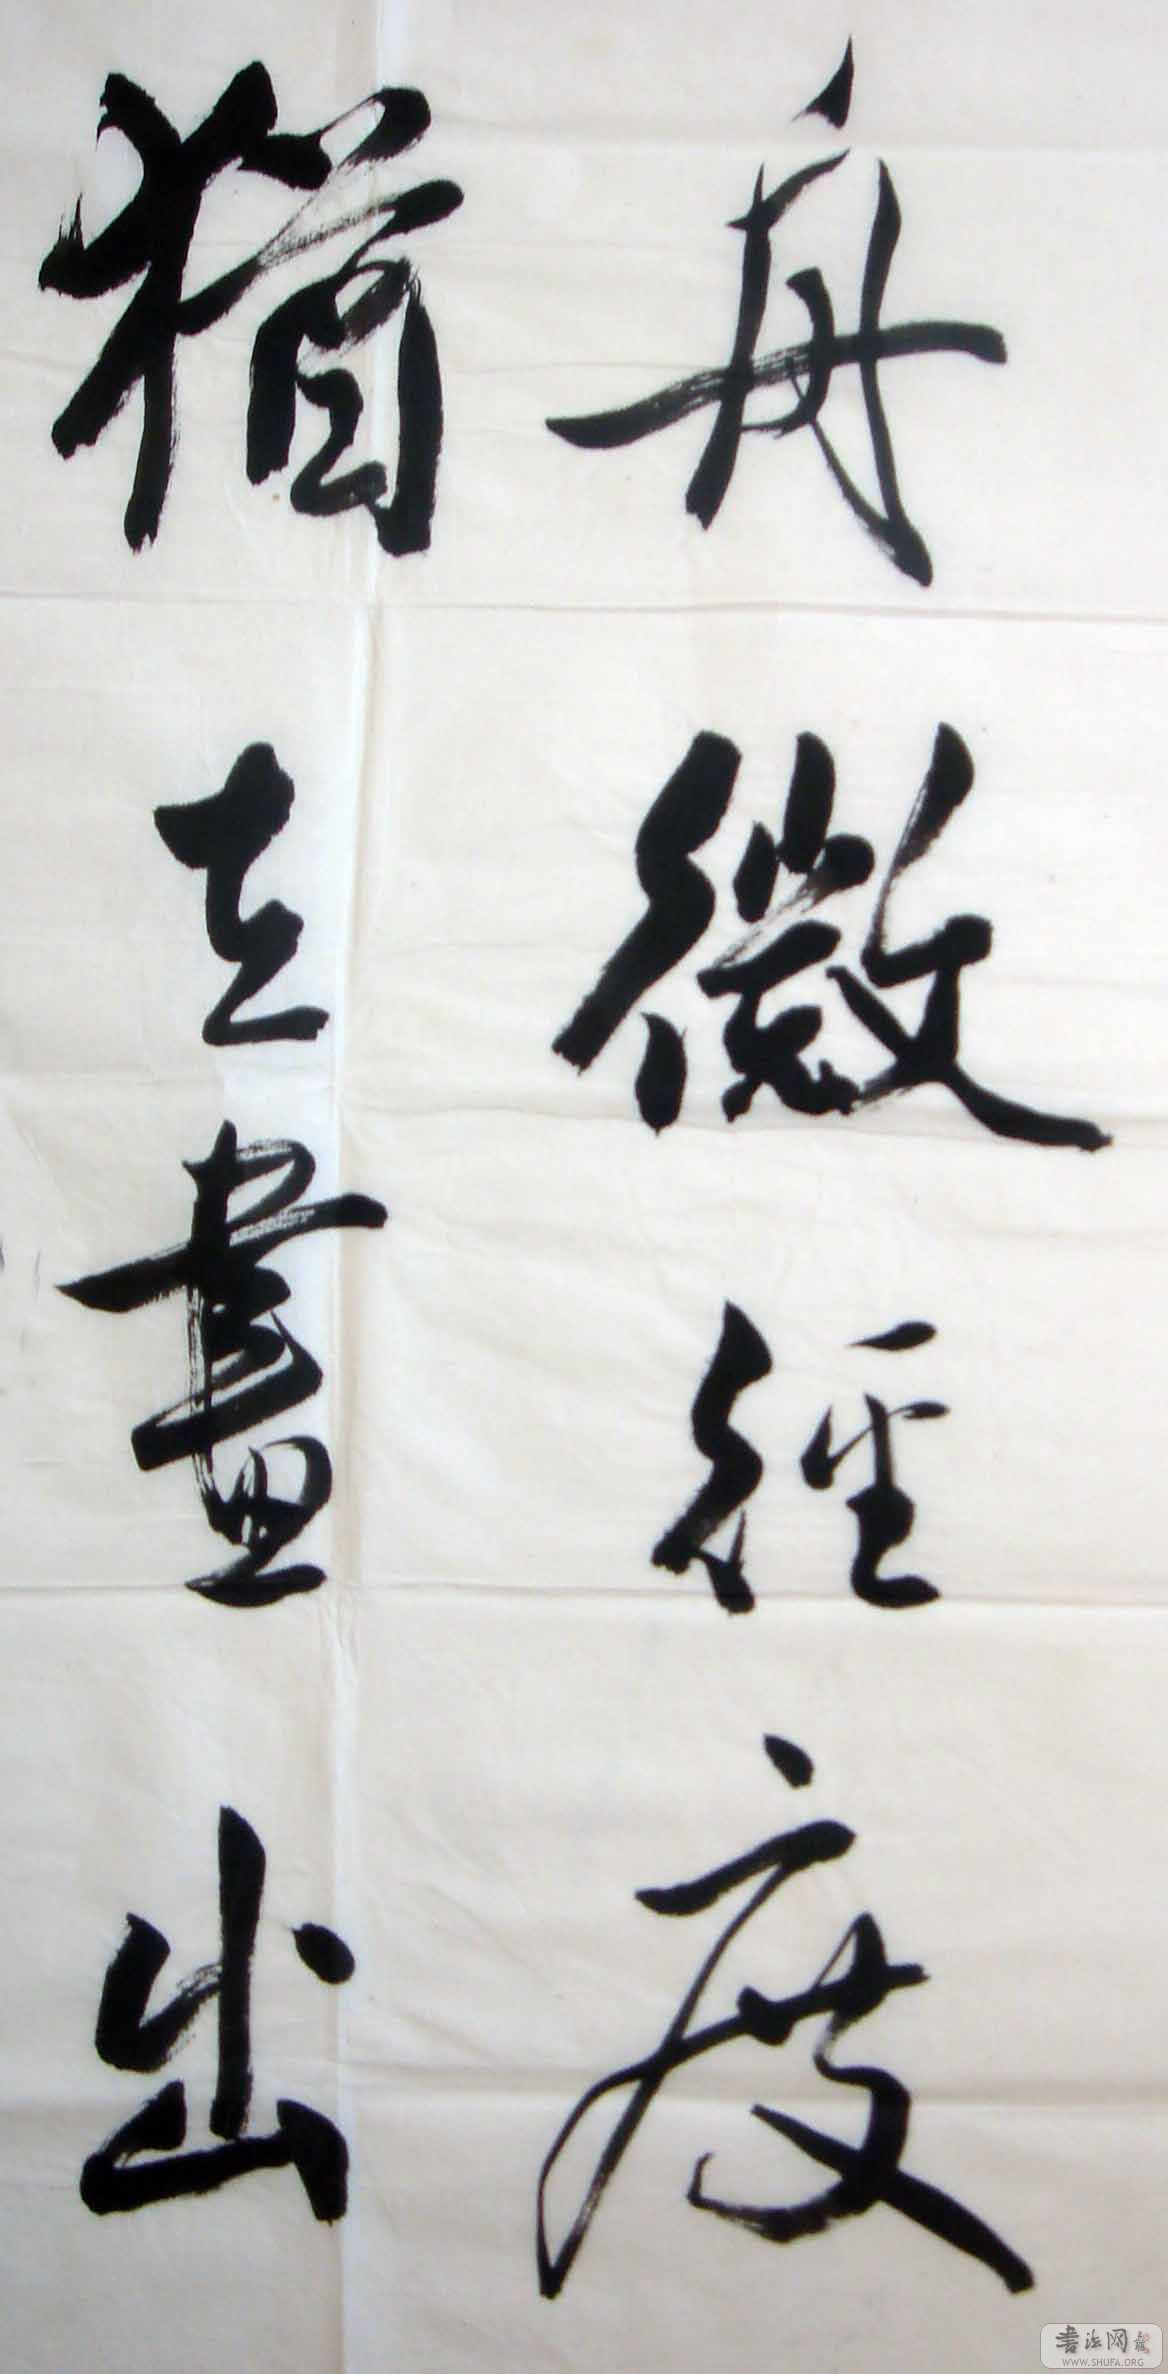 舟微經度
猶畫出
書法网
WWW.SHUFA.ORG